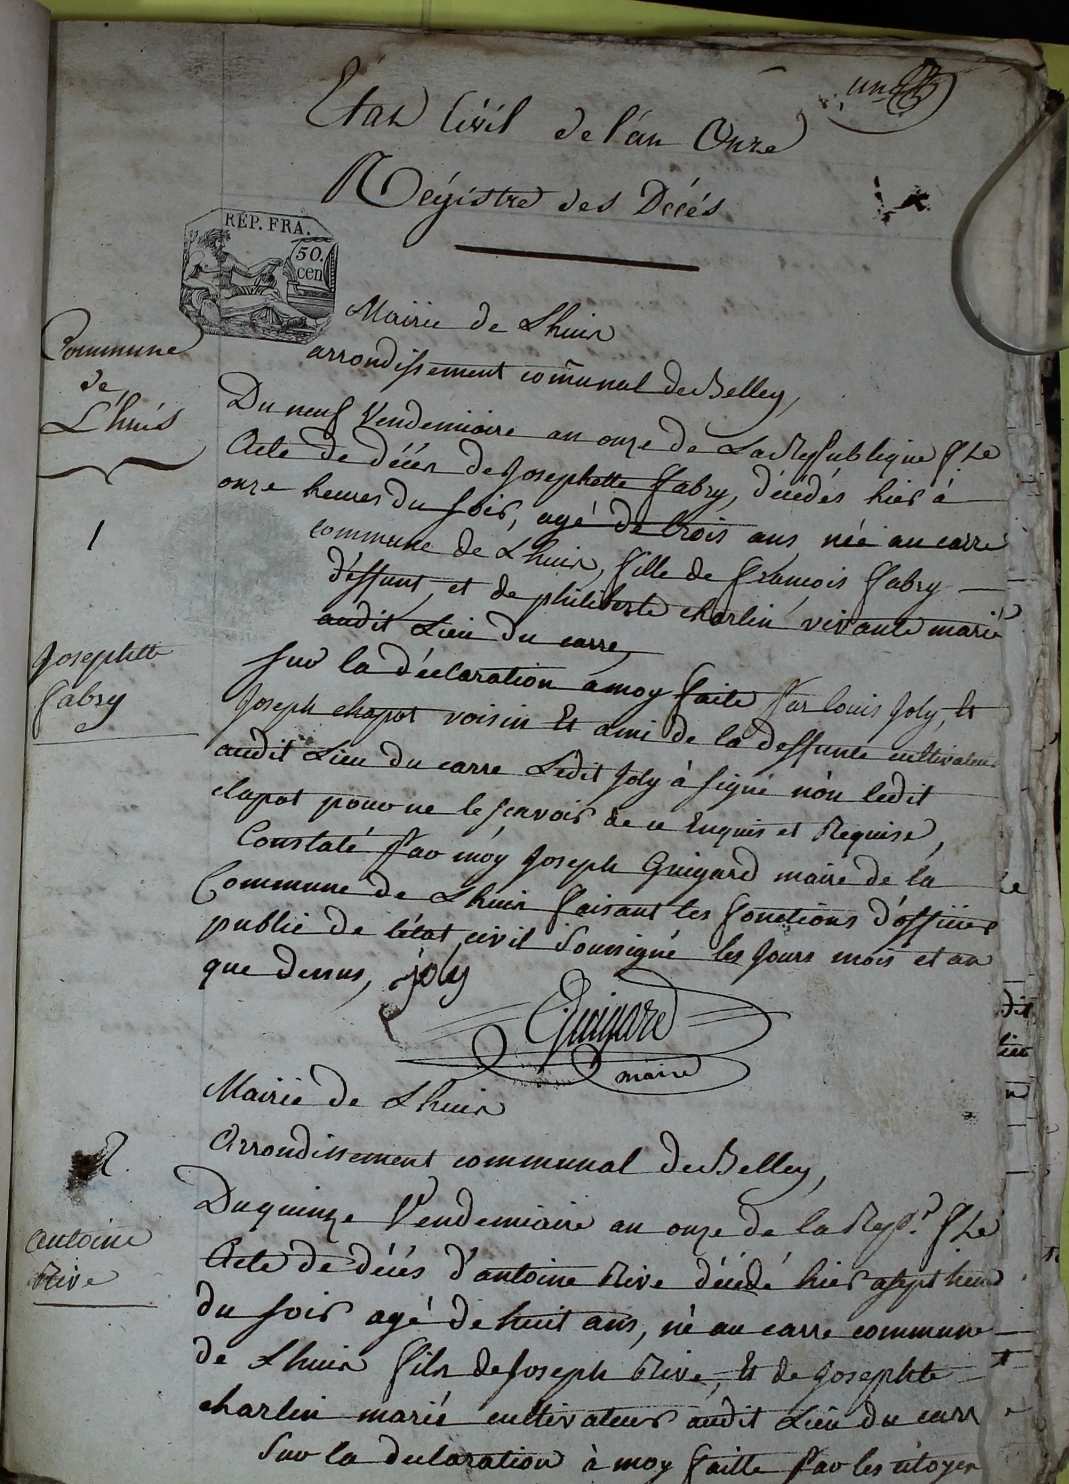 un
Etat Civil de l'an Onze
Régistre des Décés
RÉP. FRA.
50.
cen
Mairie de Lhuis
arrondissement com̄unal de Belley,
Commune
de
Lhuis
Du neuf Vendemiaire an onze de La Republique f.se
Acte de décés de Josephette fabry, décédés hier à
onze heures du soir, agé de trois ans, née au carre
commune de Lhuis, fille de francois fabry
déffunt, et de philiberte charlin vivante marié
audit Lieu du carre,
1
Josephette
fabry
sur la déclaration a moy faite par louis Joly, Et
Joseph chapot voisin Et ami de la deffunte cultivateurs
audit Lieu du carre Ledit Joly à signé nòn ledit
chapot pour ne le sçavoir de ce Enquis et Requise,
Constaté par moy Joseph Guigard maire de la
Commune de Lhuis faisant les fonctions d'officier
public de l'état civil soussigné les Jours mois et an
que dessus, joly
Guigard
maire
Mairie de Lhuis
Arrondissement communal de Belley,
2.
Du quinze Vendemiaire an onze de la Rep. f.se
antoine
Rive
Acte de décés d'antoine Rive décédé hier a sept heures
du soir agé de huit ans, né au carre commune
de Lhuis fils de Joseph Rive, Et de Josephte
charlin marié cultivateurs audit Lieu du carre
Sur la declaration à moy faitte par les citoyens